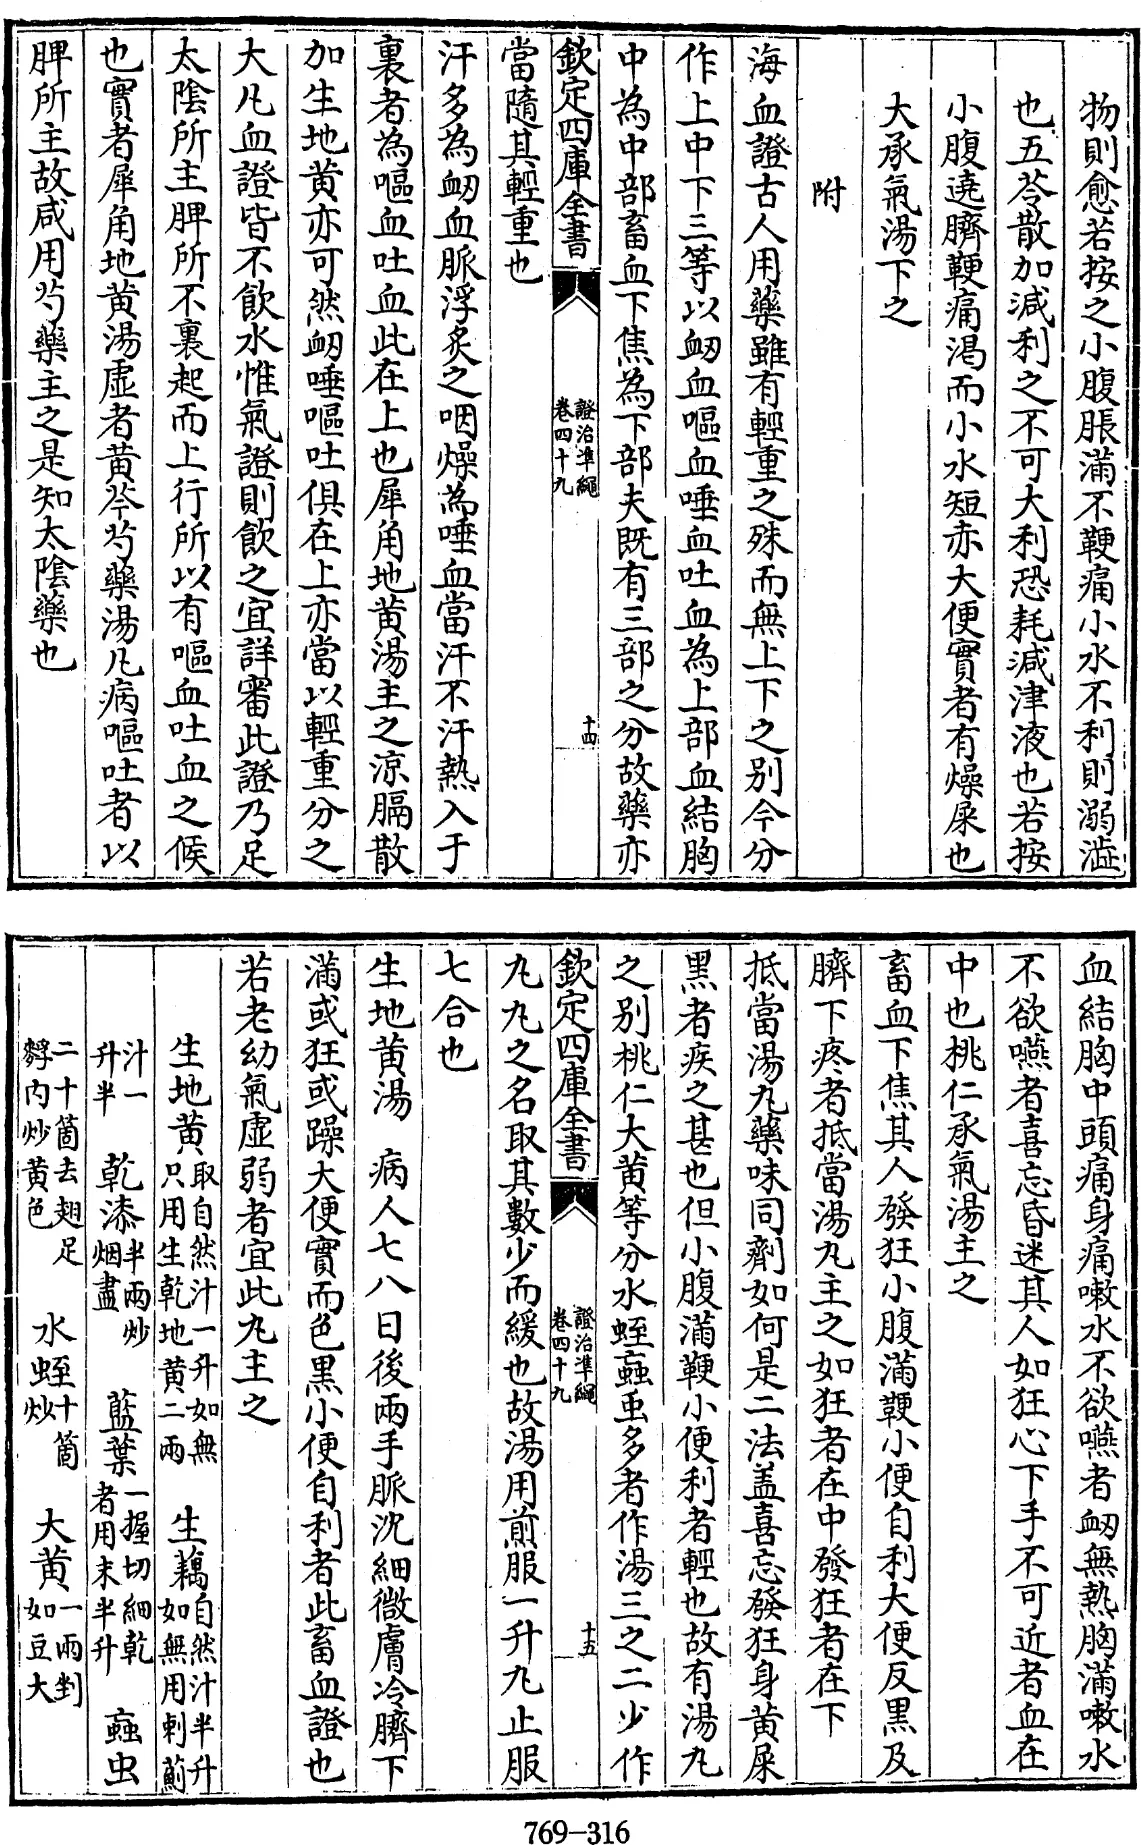 物則愈若按之小腹脹滿不鞕痛小水不利則溺澁
也五苓散加減利之不可大利恐耗減津液也若按
小腹遶臍鞕痛渴而小水短赤大便實者有燥屎也
大承氣湯下之
附
海血證古人用藥雖有輕重之殊而無上下之別今分
作上中下三等以衂血嘔血唾血吐血為上部血結胸
中為中部畜血下焦為下部夫既有三部之分故藥亦
欽定四庫全書
證治準繩
卷四十九
十四
當隨其輕重也
汗多為衂血脈浮灸之咽燥為唾血當汗不汗熱入于
裏者為嘔血吐血此在上也犀角地黄湯主之涼膈散
加生地黄亦可然衂唾嘔吐俱在上亦當以輕重分之
大凡血證皆不飲水惟氣證則飲之宜詳審此證乃足
太陰所主脾所不裏起而上行所以有嘔血吐血之候
也實者犀角地黄湯虛者黄芩芍藥湯凡病嘔吐者以
脾所主故咸用芍藥主之是知太陰藥也
血結胸中頭痛身痛嗽水不欲嚥者衂無熱胸滿嗽水
不欲嚥者喜忘昏迷其人如狂心下手不可近者血在
中也桃仁承氣湯主之
畜血下焦其人發狂小腹滿鞕小便自利大便反黑及
臍下疼者抵當湯丸主之如狂者在中發狂者在下
抵當湯丸藥味同劑如何是二法盖喜忘發狂身黄屎
黑者疾之甚也但小腹滿鞕小便利者輕也故有湯丸
之別桃仁大黄等分水蛭蝱蟲多者作湯三之二少作
欽定四庫全書
證治準繩
卷四十九
十五
丸丸之名取其數少而緩也故湯用煎服一升丸止服
七合也
生地黄湯 病人七八日後兩手脈沈細微膚冷臍下
滿或狂或躁大便實而色黑小便自利者此畜血證也
若老幼氣虛弱者宜此丸主之
生地黄取自然汁一升如無只用生乾地黄二兩 生藕自然汁半升如無用刺薊
汁一升半 乾漆半兩炒烟盡 藍葉一握切細乾者用末半升 蝱虫
二十箇去翅足麩内炒黄色 水蛭十箇炒 大黄一兩剉如豆大
769-316